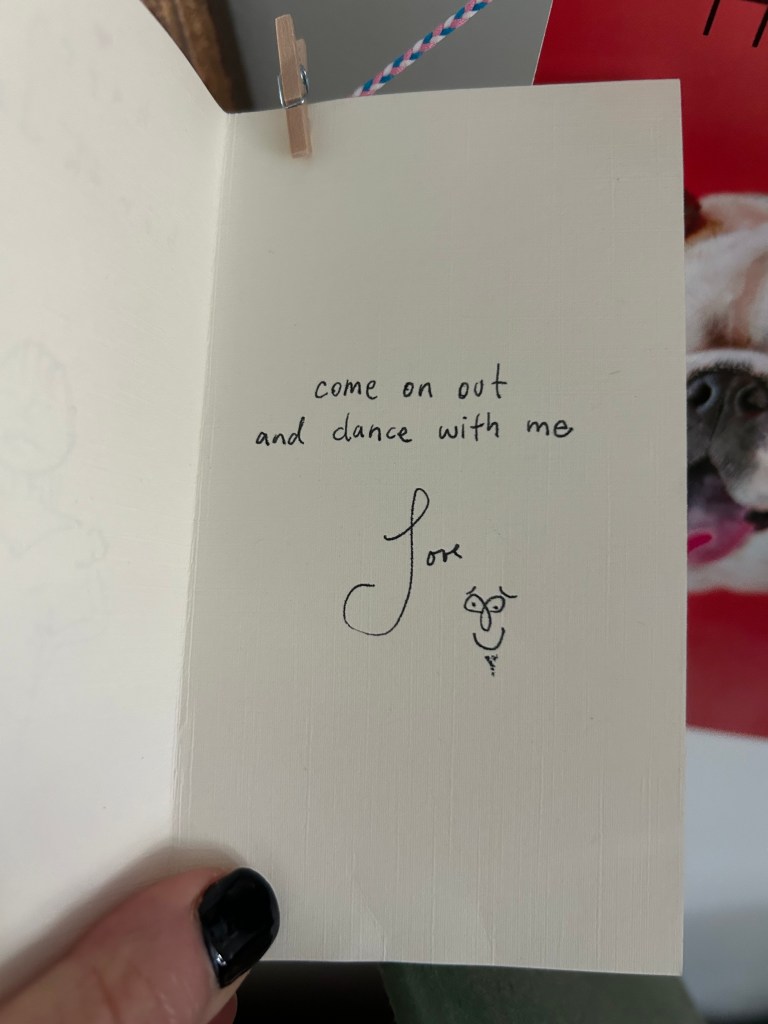 come on out
and dance with me
Love